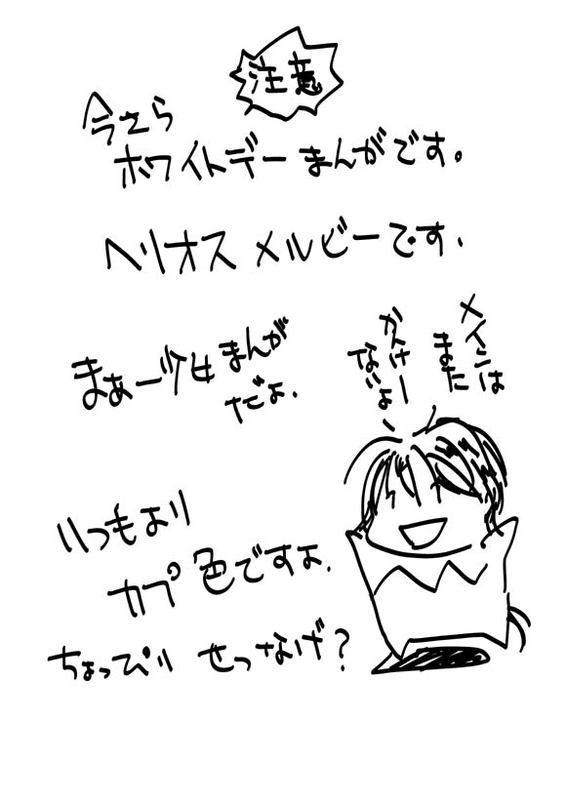 注意
今さら
ホワイトデーまんがです。
ヘリオスメルビーです.
まぁー少女まんが
だよ.
メインは
また
かんけー
ないよー
いつもより
カプ色ですよ.
ちょっぴりせつなげ?